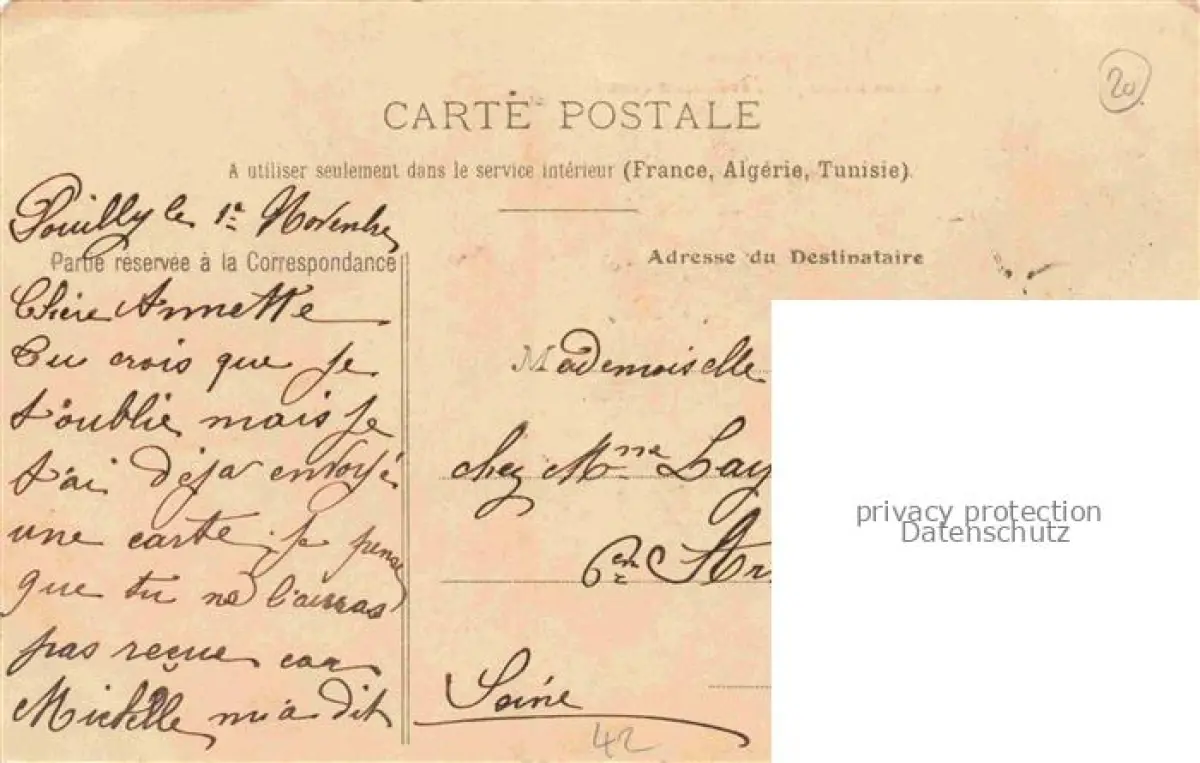 20
CARTE POSTALE
A utiliser seulement dans le service intérieur (France, Algérie, Tunisie).
Pouilly le 1er Novembre
Partie réservée à la Correspondance
Adresse du Destinataire
Chère Annette
Tu crois que je
t'oublie mais je
t'ai déja envoyé
une carte, je pense
que tu ne l'auras
pas reçue car
Michelle m'a dit
Mademoiselle
chez Mme Lay
6em
Seine
42
privacy protection
Datenschutz